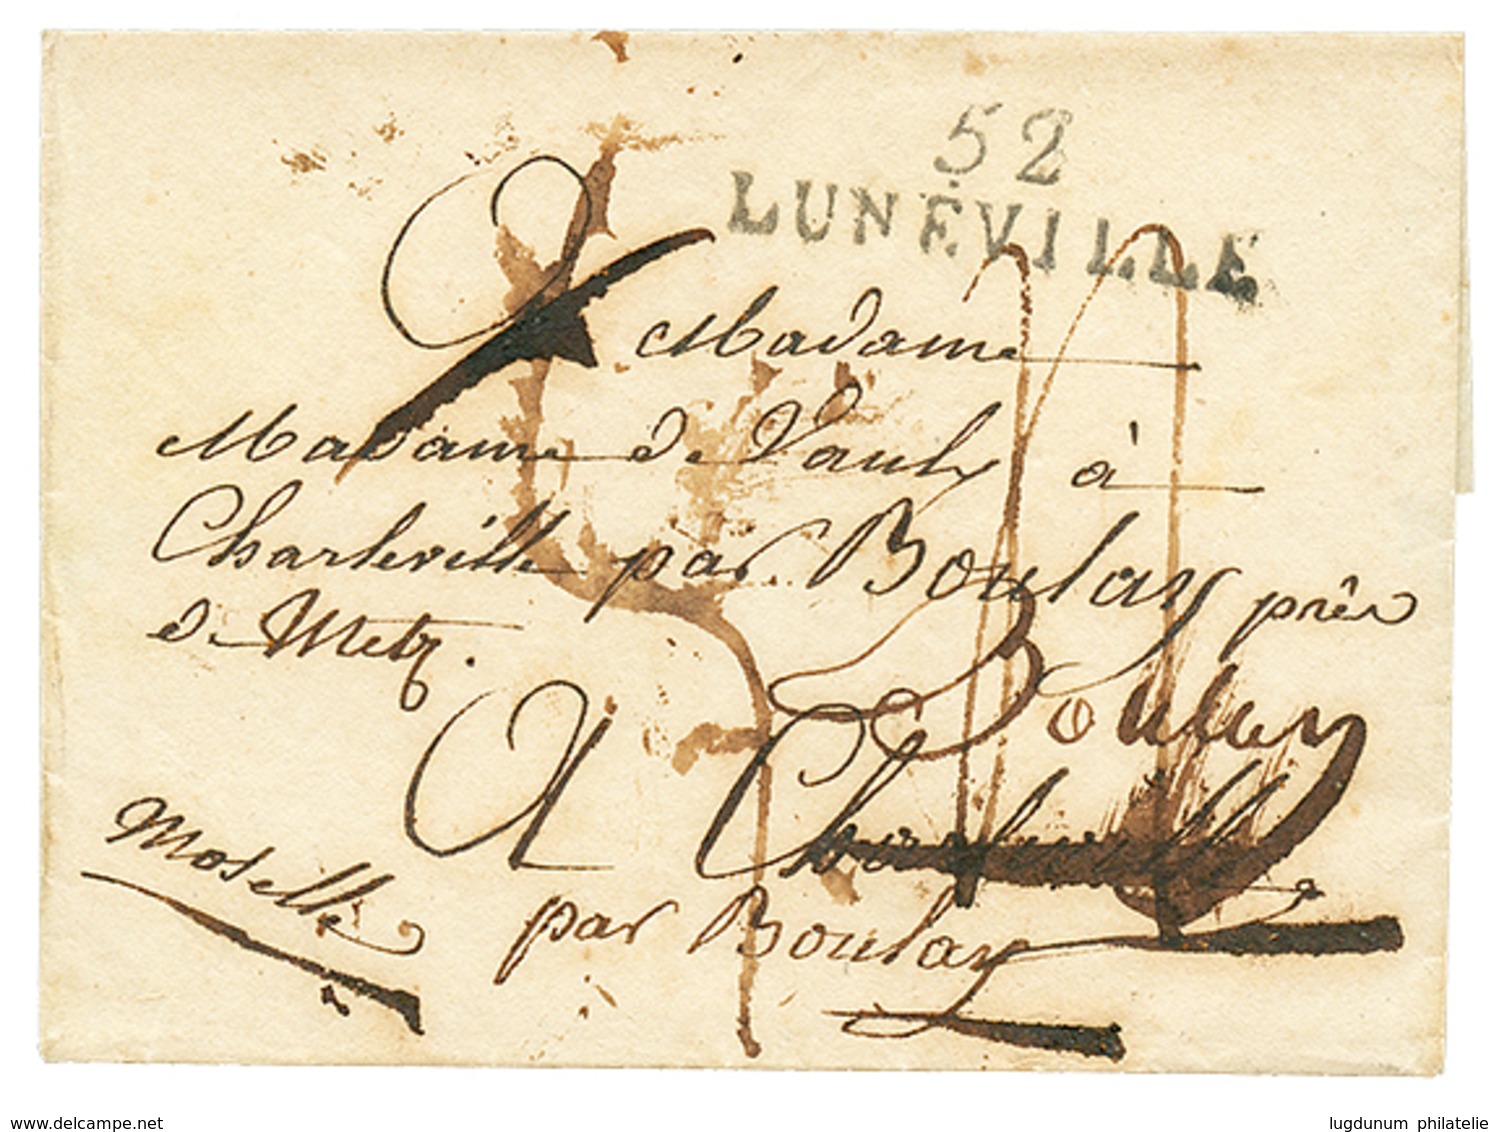 52
LUNÉVILLE
A Madame
Madame de Vaulx à
Charleville par Boulay près
de Metz.
Boulay
A Charleville
par Boulay
Moselle
www.delcampe.net
lugdunum philatelie